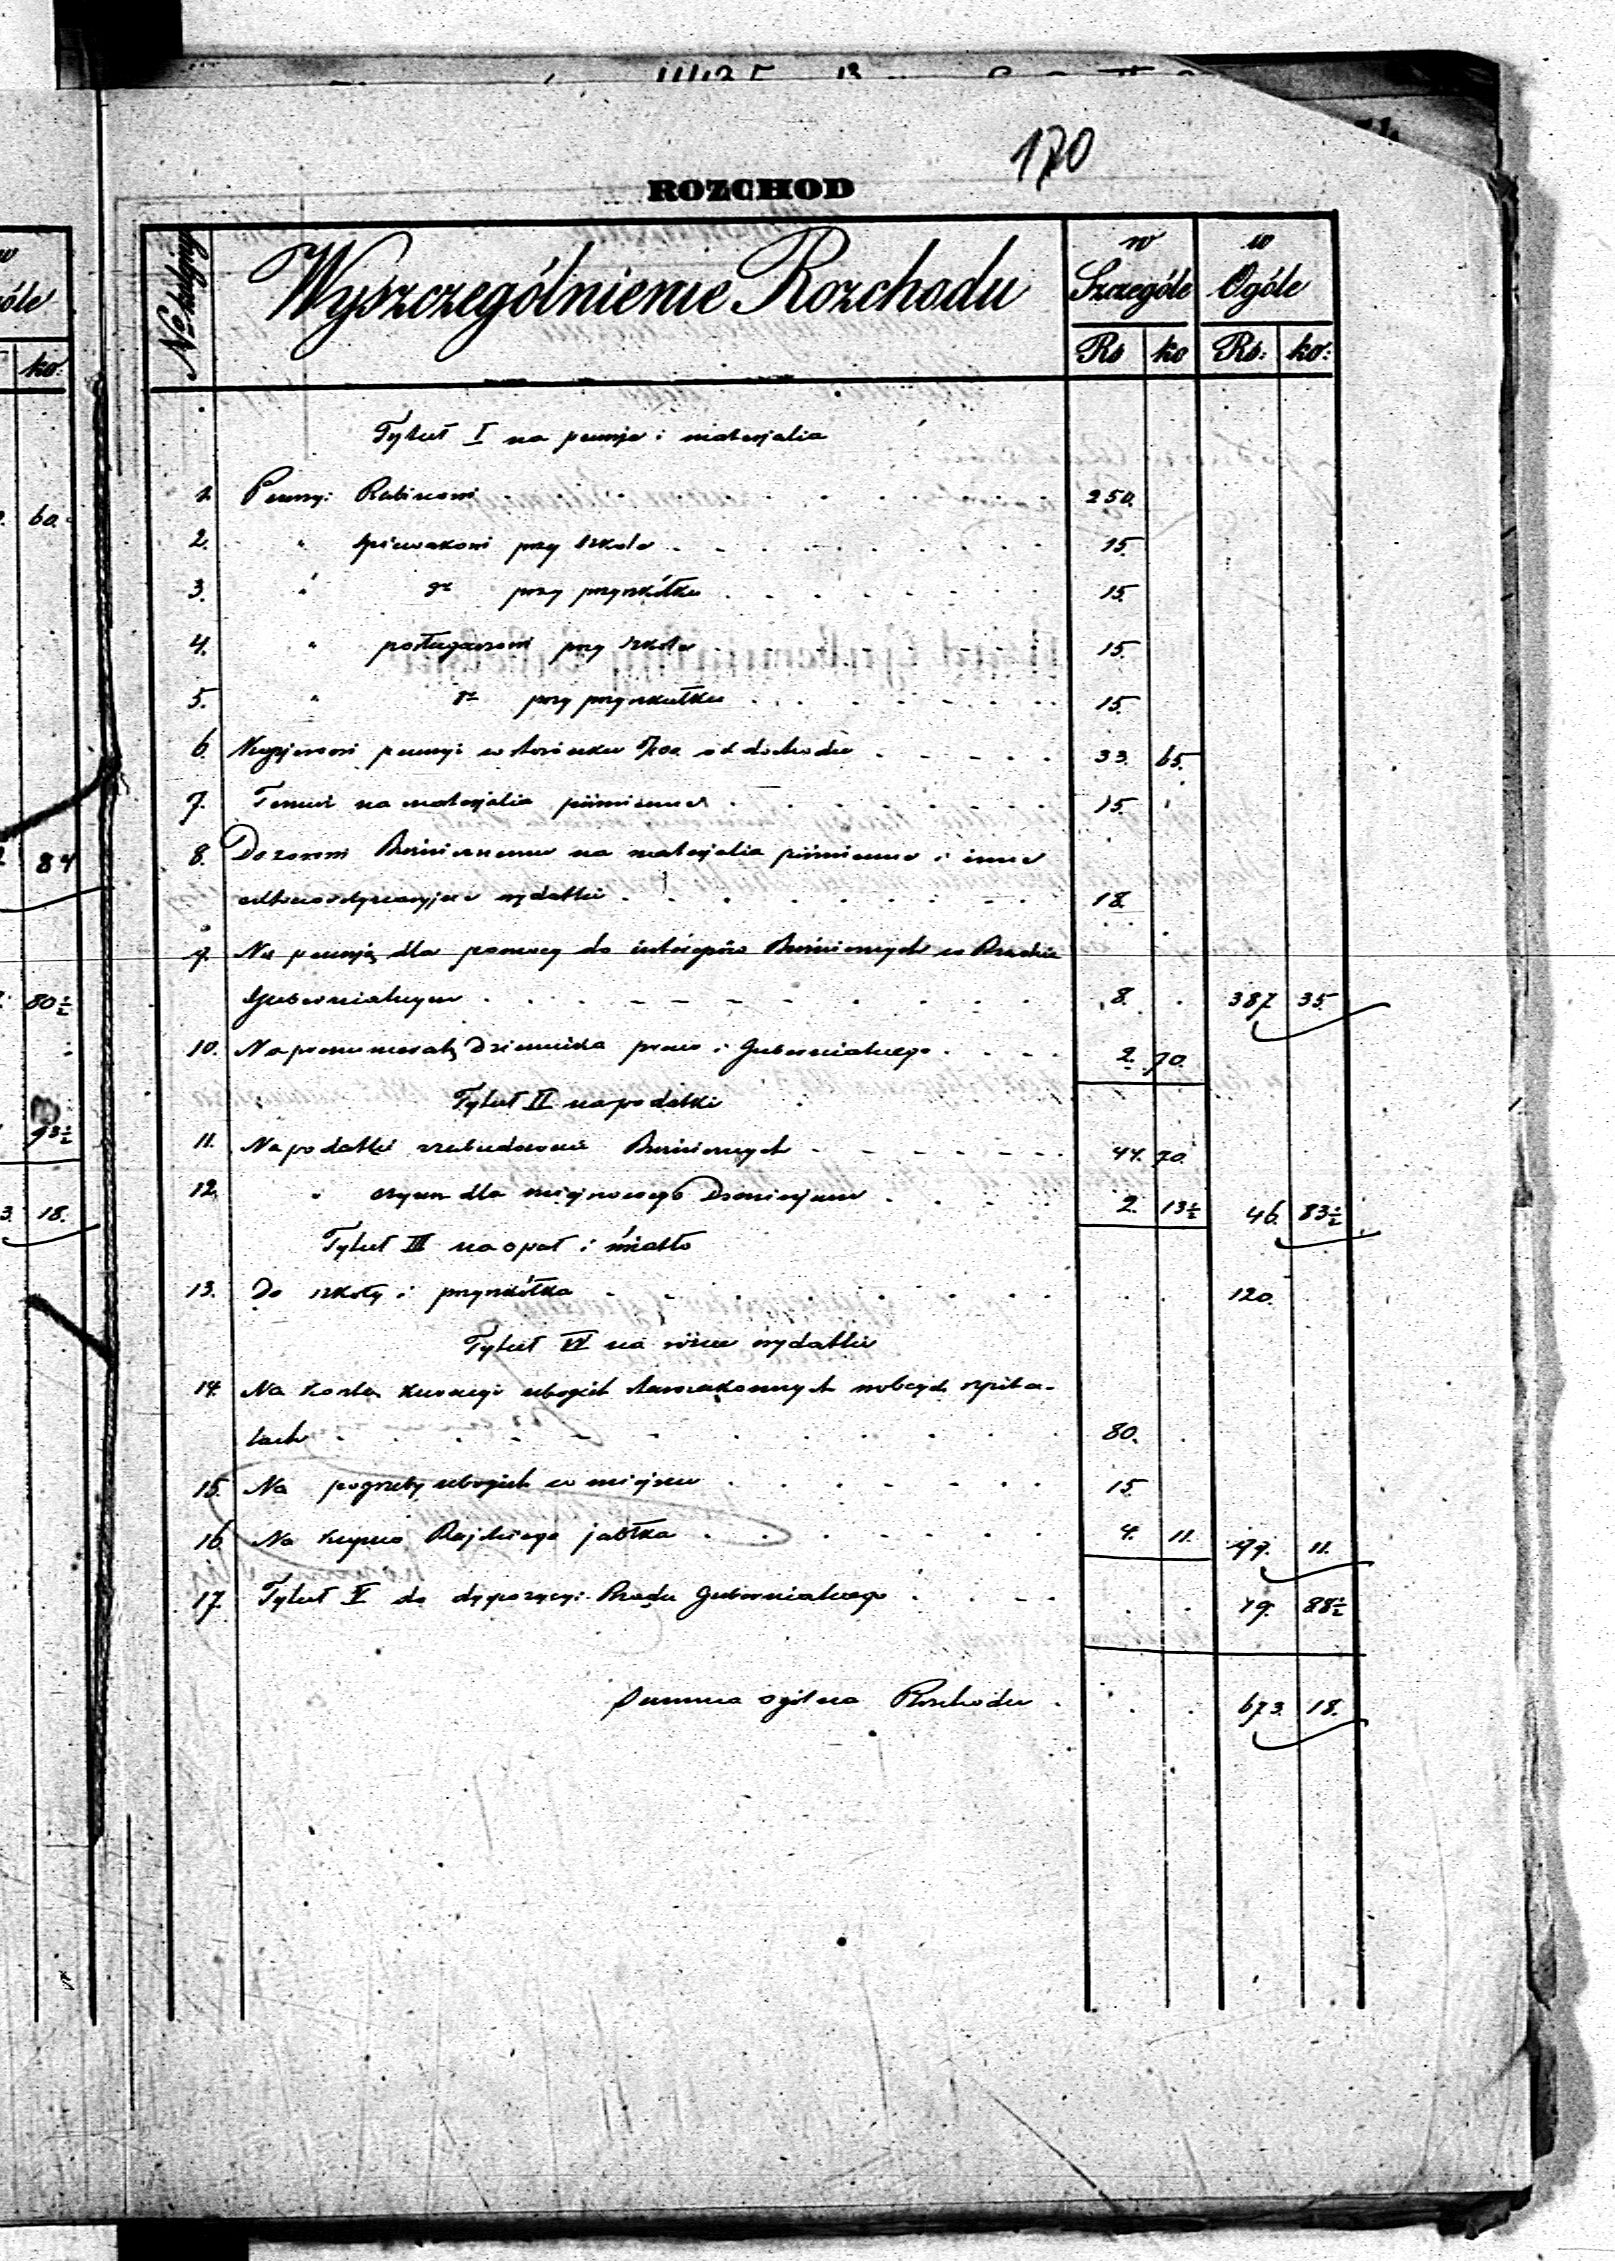 170
ROZCHOD
№ kolejny
Wyszczególnienie Rozchodu
w Szczególe
w Ogóle
Rs ko Rs: ko:
Tytuł I na pensje i materjalia
1. Pensyi Rabinowi 250.
2. " śpiewakowi przy szkole 15.
3. " do przy przyszkółku 15.
4. " posługaczowi przy szkole 15.
5. " do przy przyszkułku 15.
6. Kasyjerowi pensyi w stosunku 5/100 od dochodu 33. 65.
7. Temuż na materjalia piśmienne 15.
8. Dozorowi Bóżniczemu na materjalia piśmienne i inne
wydatki 18.
9. Na pensją dla pomocy do interesów Bóżniczych w Rządzie
Gubernialnym 8. 387 35.
10. Na prenumeratę Dziennika praw i Gubernialnego 2. 70.
Tytuł II na podatki
11. Na podatki z zabudowań Bóżniczych 44. 70.
12. " czynsz dla miejscowego Dominijum 2. 13½ 46. 83½
Tytuł III na opał i światło
13. Do szkoły i przyszkółka 120.
Tytuł IV na różne wydatki
14. Na koszta kuracyi ubogich starozakonnych w obcych szpita-
lach 80.
15. Na pogrzeby ubogich w miejscu 15.
16. Na kupno Rajskiego jabłka 4. 11. 99. 11.
17. Tytuł V do dyspozycyi Rządu Gubernialnego 19. 88½
Summa ogólna Rozchodu 673. 18.
ko:
60.
84
80½
93½
3. 18.